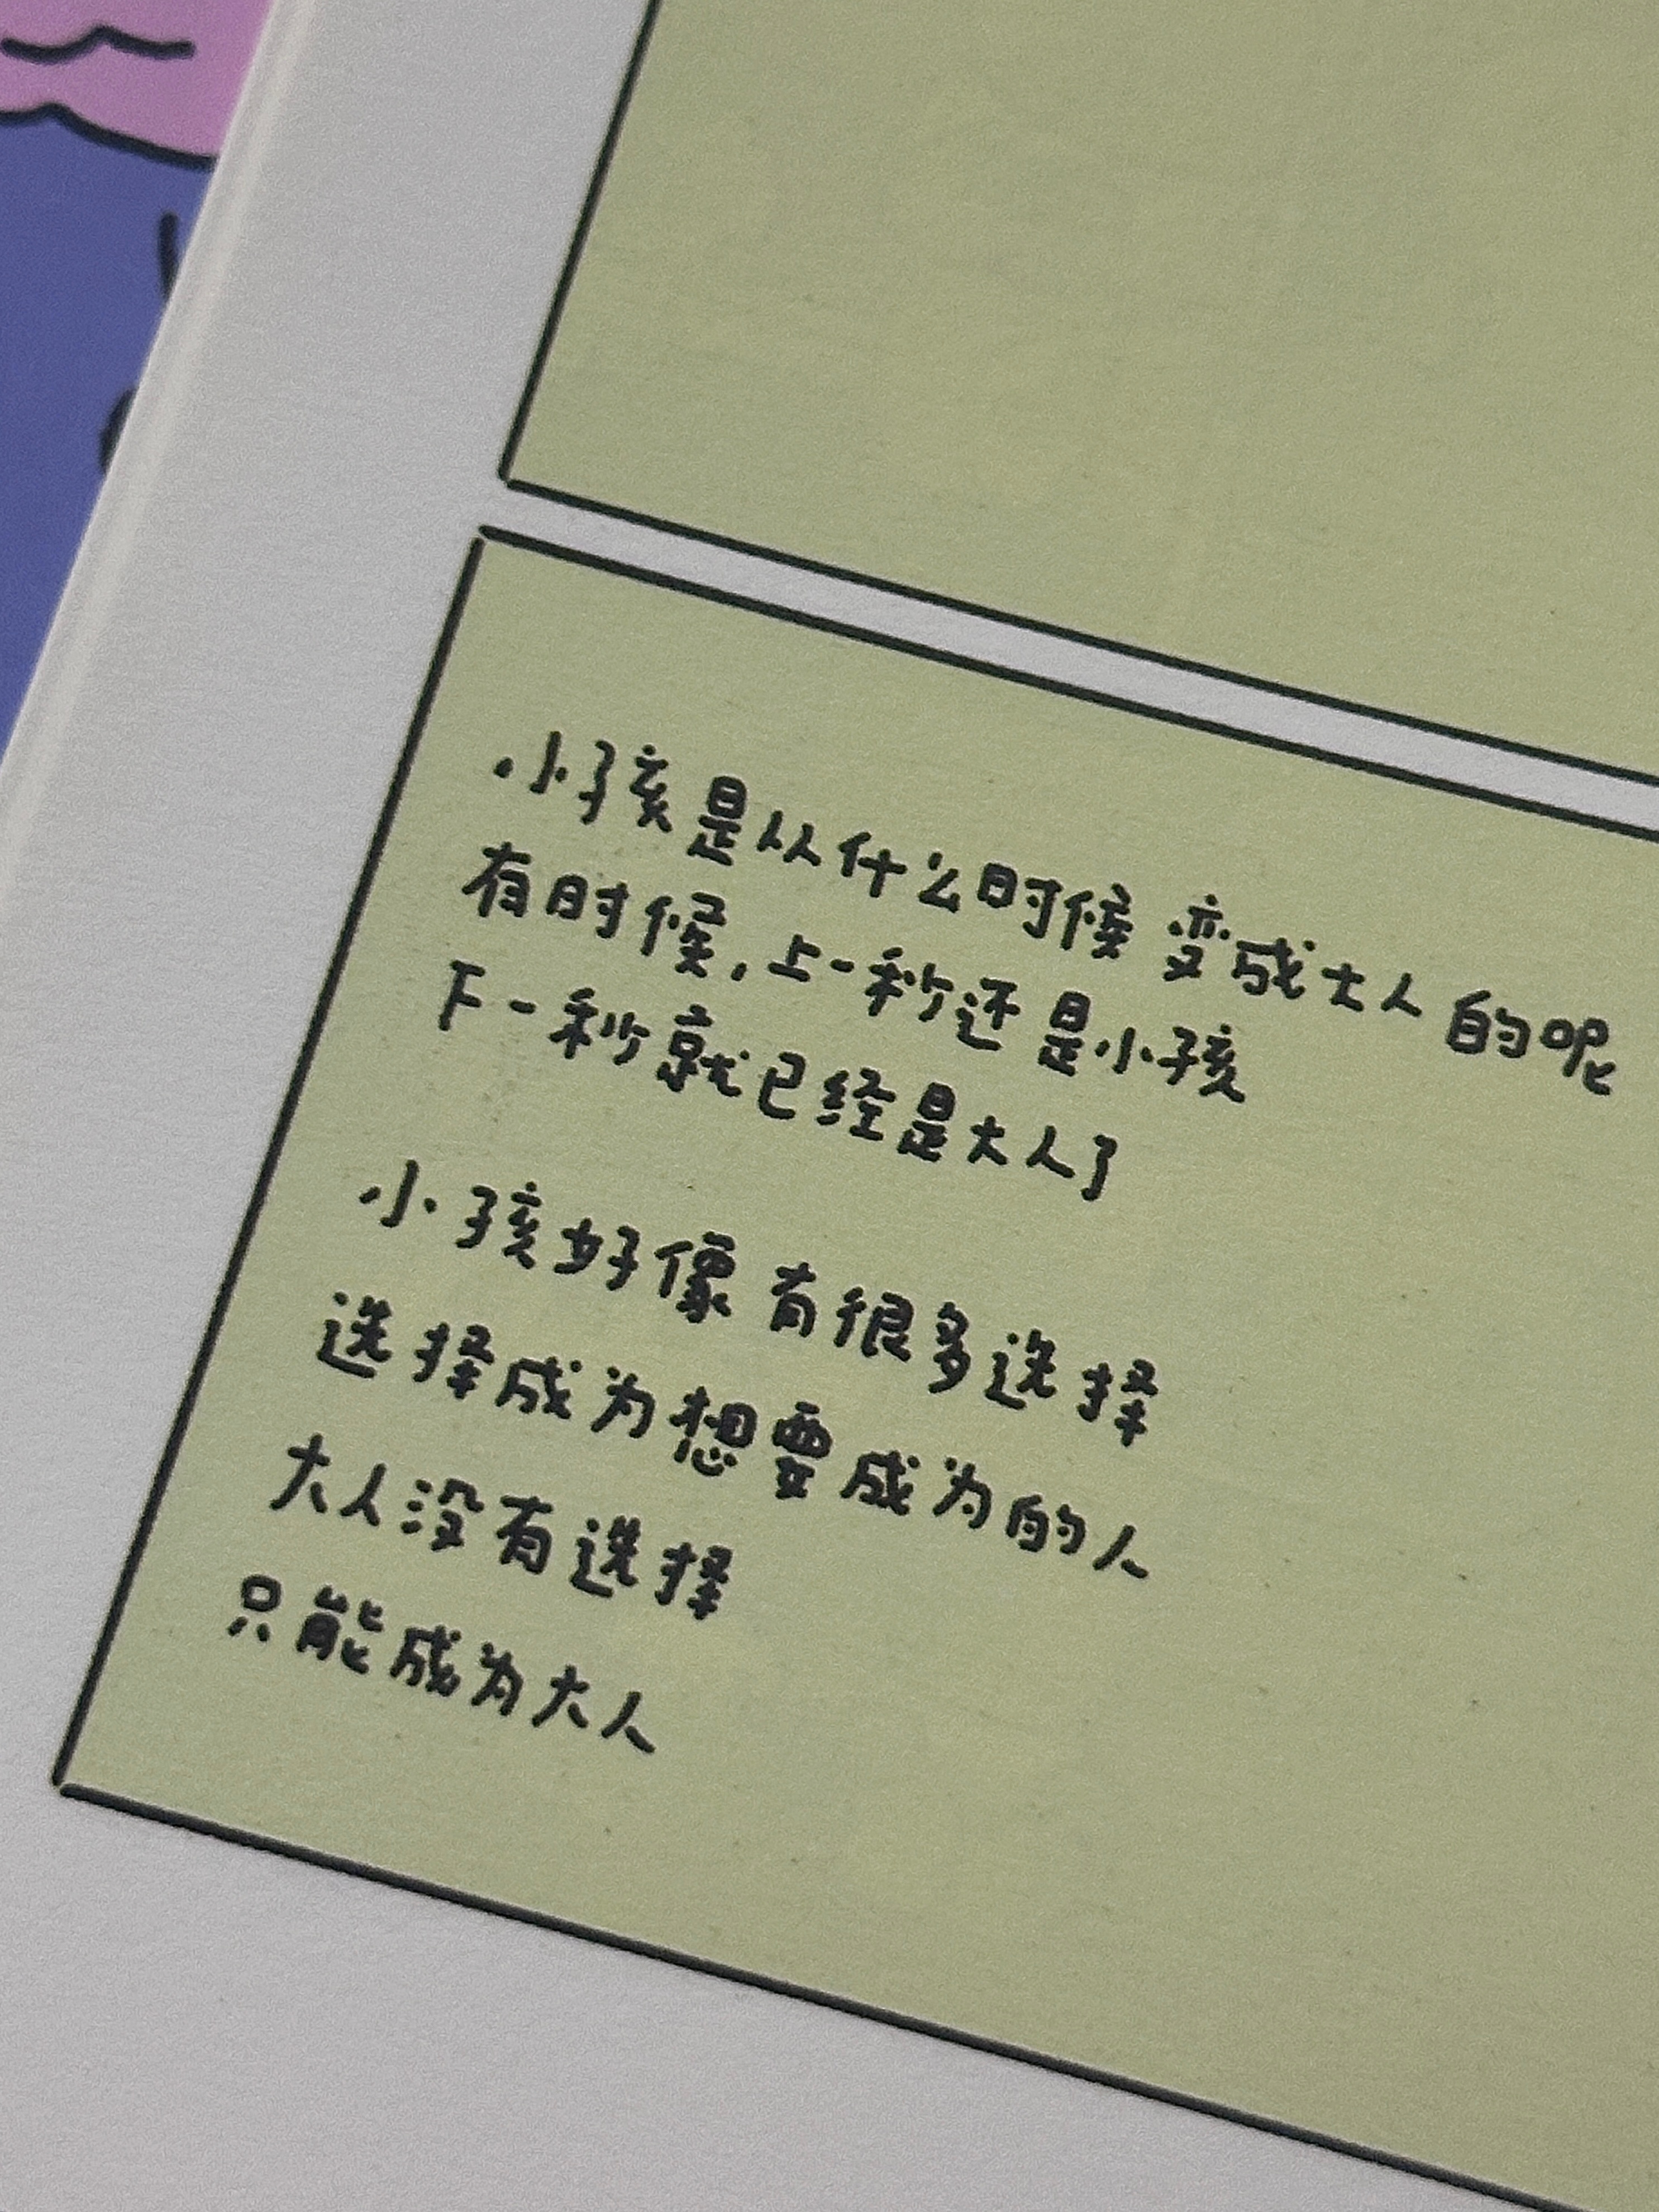 小孩是从什么时候变成大人的呢
有时候，上一秒还是小孩
下一秒就已经是大人了
小孩好像有很多选择
选择成为想要成为的人
大人没有选择
只能成为大人